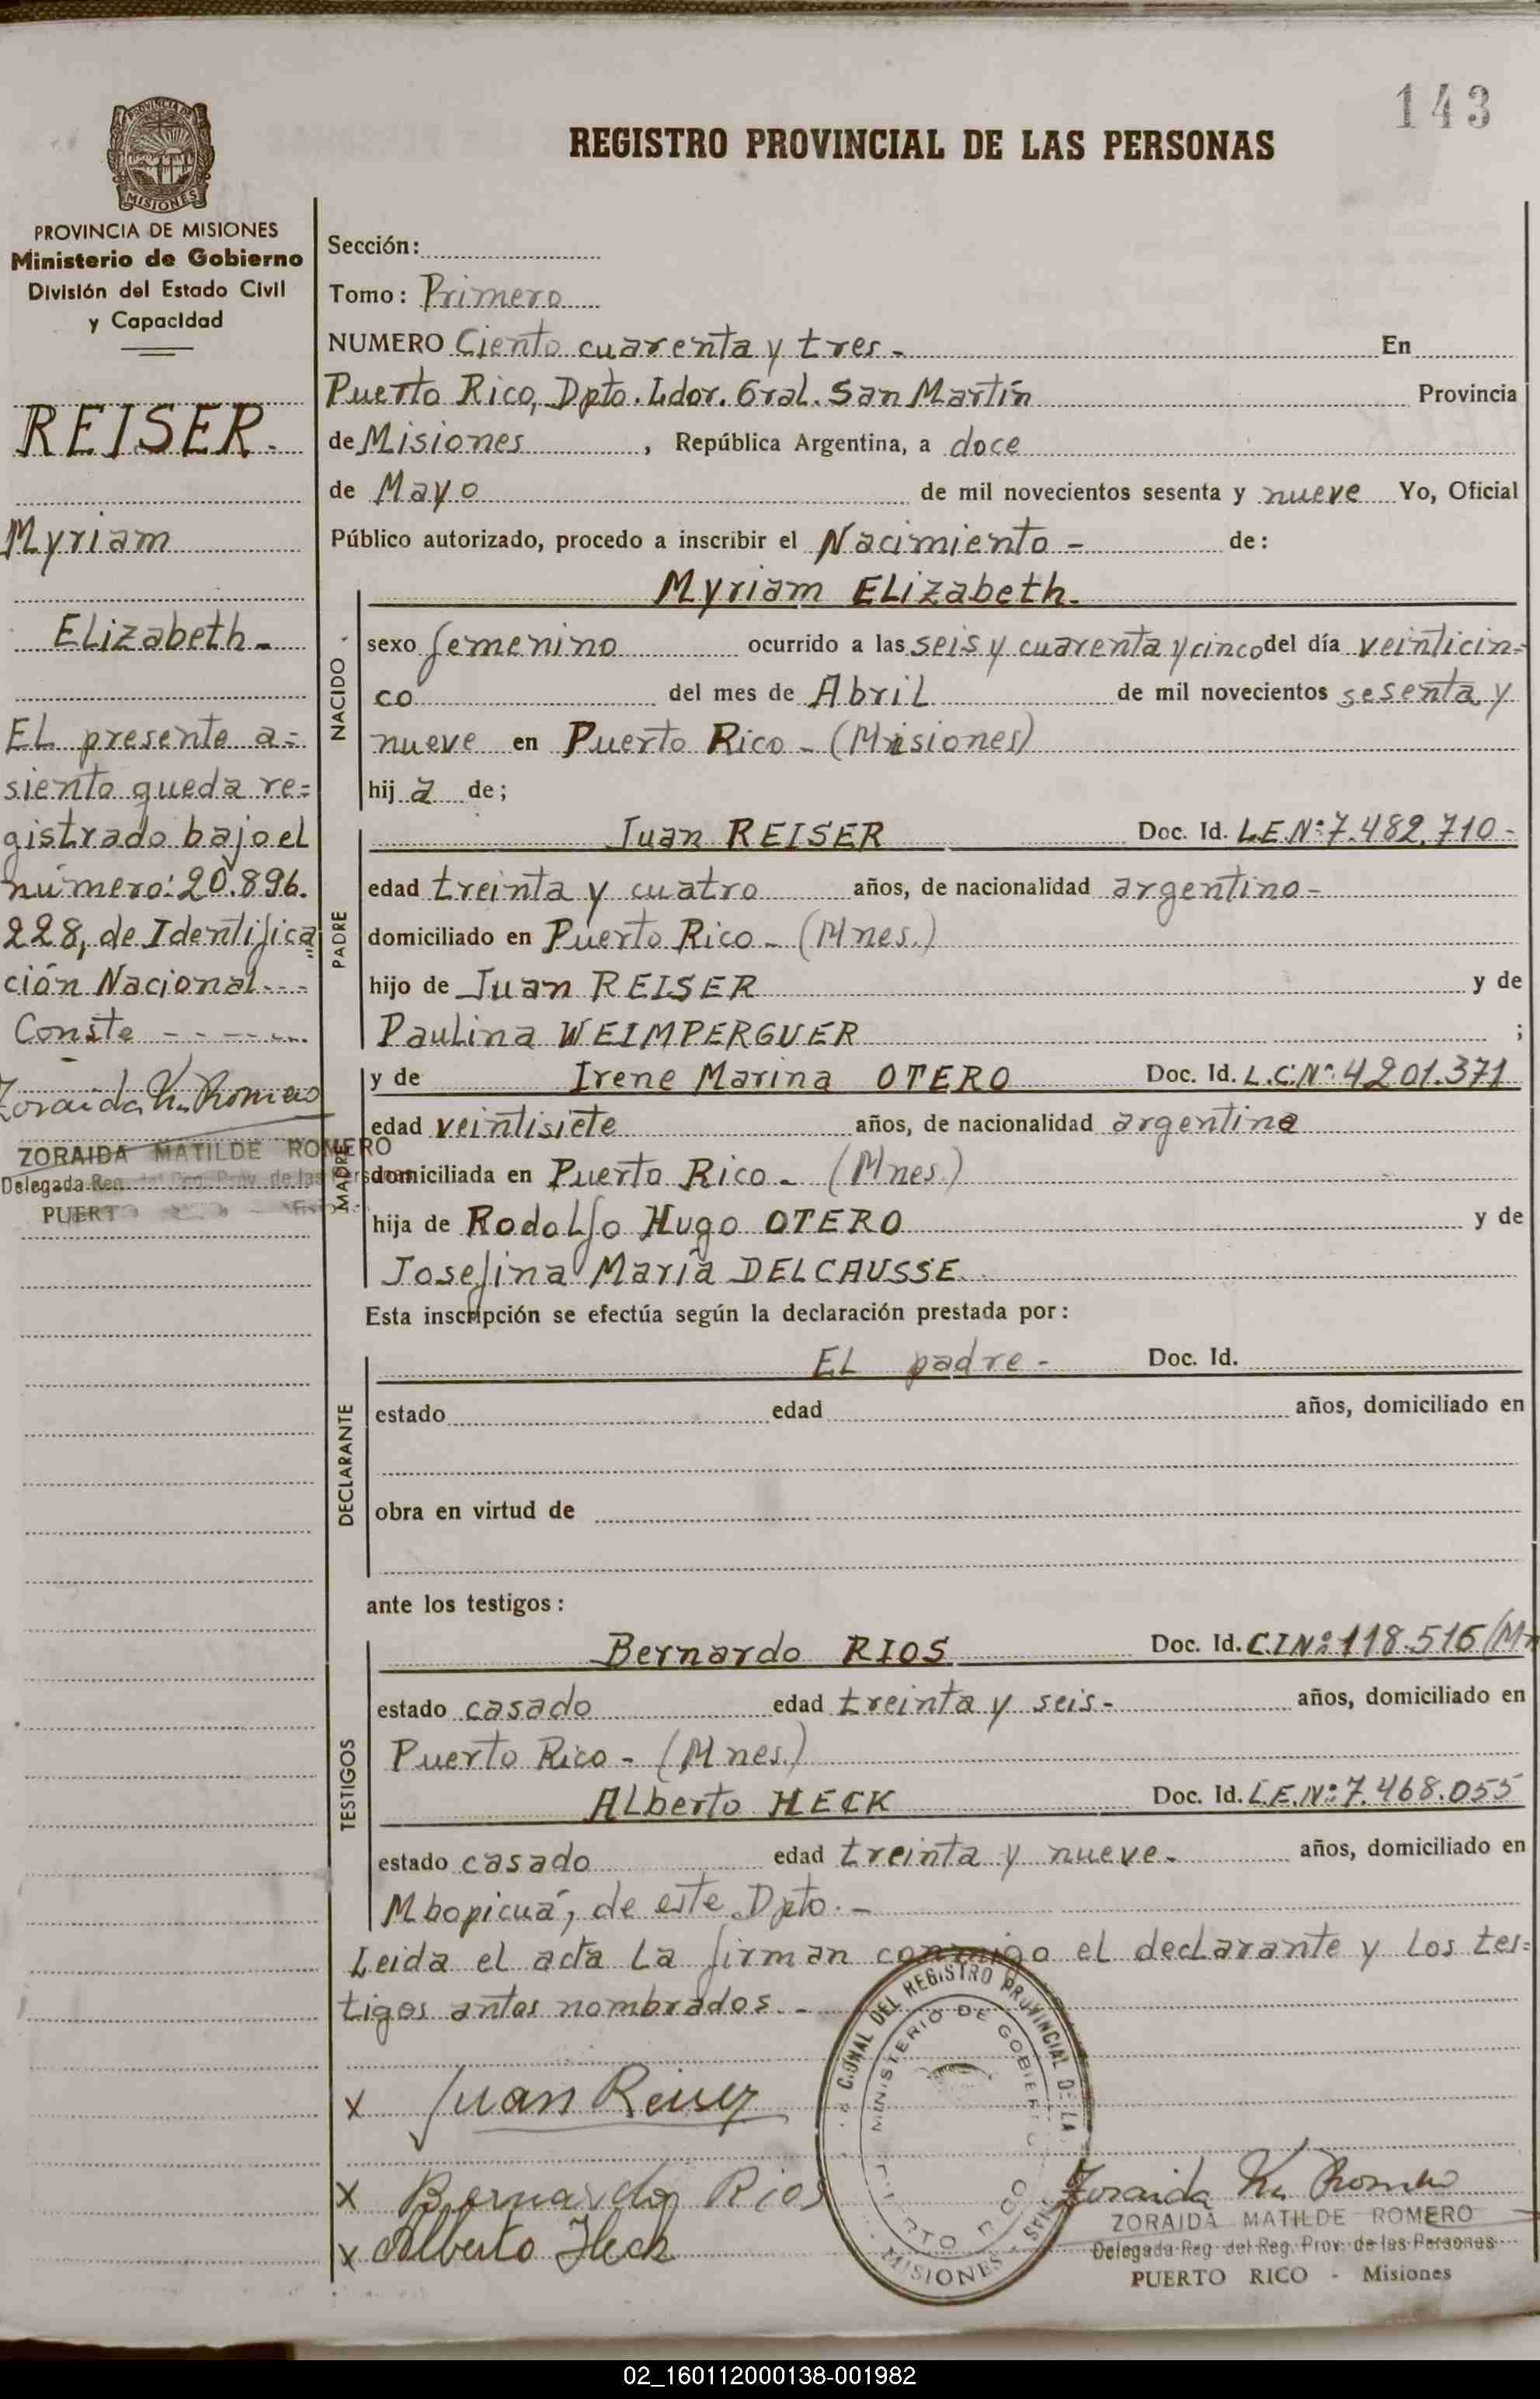 143
REGISTRO PROVINCIAL DE LAS PERSONAS
PROVINCIA DE
MISIONES
PROVINCIA DE MISIONES
Ministerio de Gobierno
División del Estado Civil
y Capacidad
REISER.
Myriam
ELizabeth-
EL presente a=
siento queda re=
gistrado bajo el
número: 20.896.
228, de Identifica=
ción Nacional---
Conste ------
Zoraida M. Romero
ZORAIDA MATILDE ROMERO
Delegada Reg. del Reg. Prov. de las Personas
PUERTO
Sección:
Tomo: Primero
NUMERO Ciento cuarenta y tres- En
Puerto Rico, Dpto. Ldor. Gral. San Martín Provincia
de Misiones, República Argentina, a doce
de Mayo de mil novecientos sesenta y nueve Yo, Oficial
Público autorizado, procedo a inscribir el Nacimiento- de:
Myriam ELizabeth.
NACIDO
sexo femenino ocurrido a las seis y cuarenta y cinco del día veinticin=
co del mes de Abril de mil novecientos sesenta y
nueve en Puerto Rico-(Misiones)
hija de;
PADRE
Juan REISER Doc. Id. L.E.Nº:7.482.710-
edad treinta y cuatro años, de nacionalidad argentino-
domiciliado en Puerto Rico-(Mnes.)
hijo de Juan REISER y de
Paulina WEIMPERGUER ;
MADRE
y de Irene Marina OTERO Doc. Id. L.C.Nº:4201.371
edad veintisiete años, de nacionalidad argentina
domiciliada en Puerto Rico- (Mnes.)
hija de Rodolfo Hugo OTERO y de
Josefina María DELCAUSSE.
Esta inscripción se efectúa según la declaración prestada por:
DECLARANTE
EL padre- Doc. Id.
estado edad años, domiciliado en
obra en virtud de
ante los testigos:
TESTIGOS
Bernardo RIOS Doc. Id. C.I.Nº:118.516/Mn
estado casado edad treinta y seis- años, domiciliado en
Puerto Rico-(Mnes.)
Alberto HECK Doc. Id. L.E.Nº:7.468.055
estado casado edad treinta y nueve- años, domiciliado en
Mbopicuá, de este Dpto.-
Leida el acta La firman conmigo el declarante y los tes=
tigos antes nombrados.-
x Juan Reiser
x Bernardo Rios
x Alberto Heck
CIONAL DEL REGISTRO PROVINCIAL DE LA
MINISTERIO DE GOBIER
MISIONES
Zoraida M. Romero
ZORAIDA MATILDE ROMERO
Delegada Reg. del Reg. Prov. de las Personas
PUERTO RICO - Misiones
02_160112000138-001982